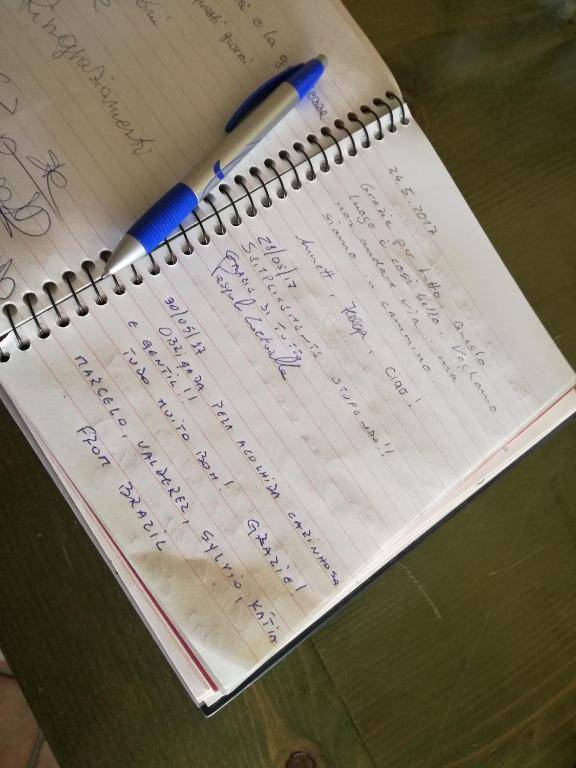 è la
questi giorni
Ringraziamenti
24.5.2017
Grazie per tto. Questo
luogo è così bello. Vogliamo
non andare via ma
siamo in cammino
Ciao!
28/05/17
SEMPLICEMENTE STUPENDO!!
GRAZIE DI TUTTO
30/05/17
OBRIGADA PELA ACOLHIDA CARINHOSA
E GENTIL!!
TUDO MUITO BOM! GRAZIE!
MARCELO, VALDEREZ, SYLVIO, KÁTIA
FROM BRAZIL